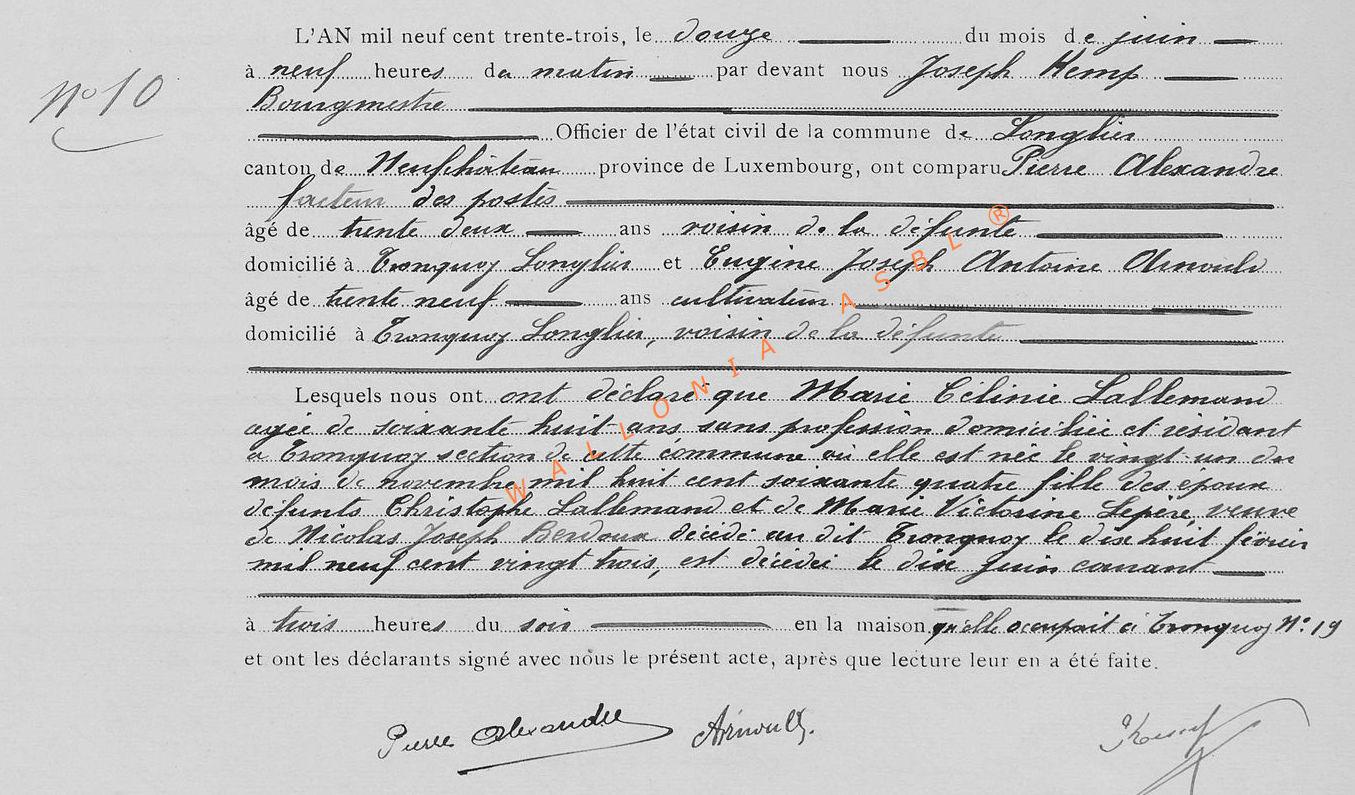 L'AN mil neuf cent trente-trois, le douze du mois de juin
N° 10
à neuf heures du matin par devant nous Joseph Kemp
Bourgmestre
Officier de l'état civil de la commune de Longlier
canton de Neufchâteau province de Luxembourg, ont comparu Pierre Alexandre
facteur des postes
âgé de trente deux ans voisin de la défunte
domicilié à Tronquoy Longlier et Eugène Joseph Antoine Arnould
âgé de trente neuf ans cultivateur
domicilié à Tronquoy Longlier, voisin de la défunte
Lesquels nous ont ont déclaré que Marie Célinie Lallemand
agée de soixante huit ans sans profession domiciliée et résidant
à Tronquoy section de cette commune où elle est née le vingt un du
mois de novembre mil huit cent soixante quatre fille des époux
défunts Christophe Lallemand et de Marie Victorine Lepère veuve
de Nicolas Joseph Berdoux décédé au dit Tronquoy le dix huit février
mil neuf cent vingt trois, est décédée le dix juin courant
à trois heures du soir en la maison qu'elle occupait à Tronquoy N° 19
et ont les déclarants signé avec nous le présent acte, après que lecture leur en a été faite.
Pierre Alexandre Arnould. JKemp
WALLONIA ASBL ®